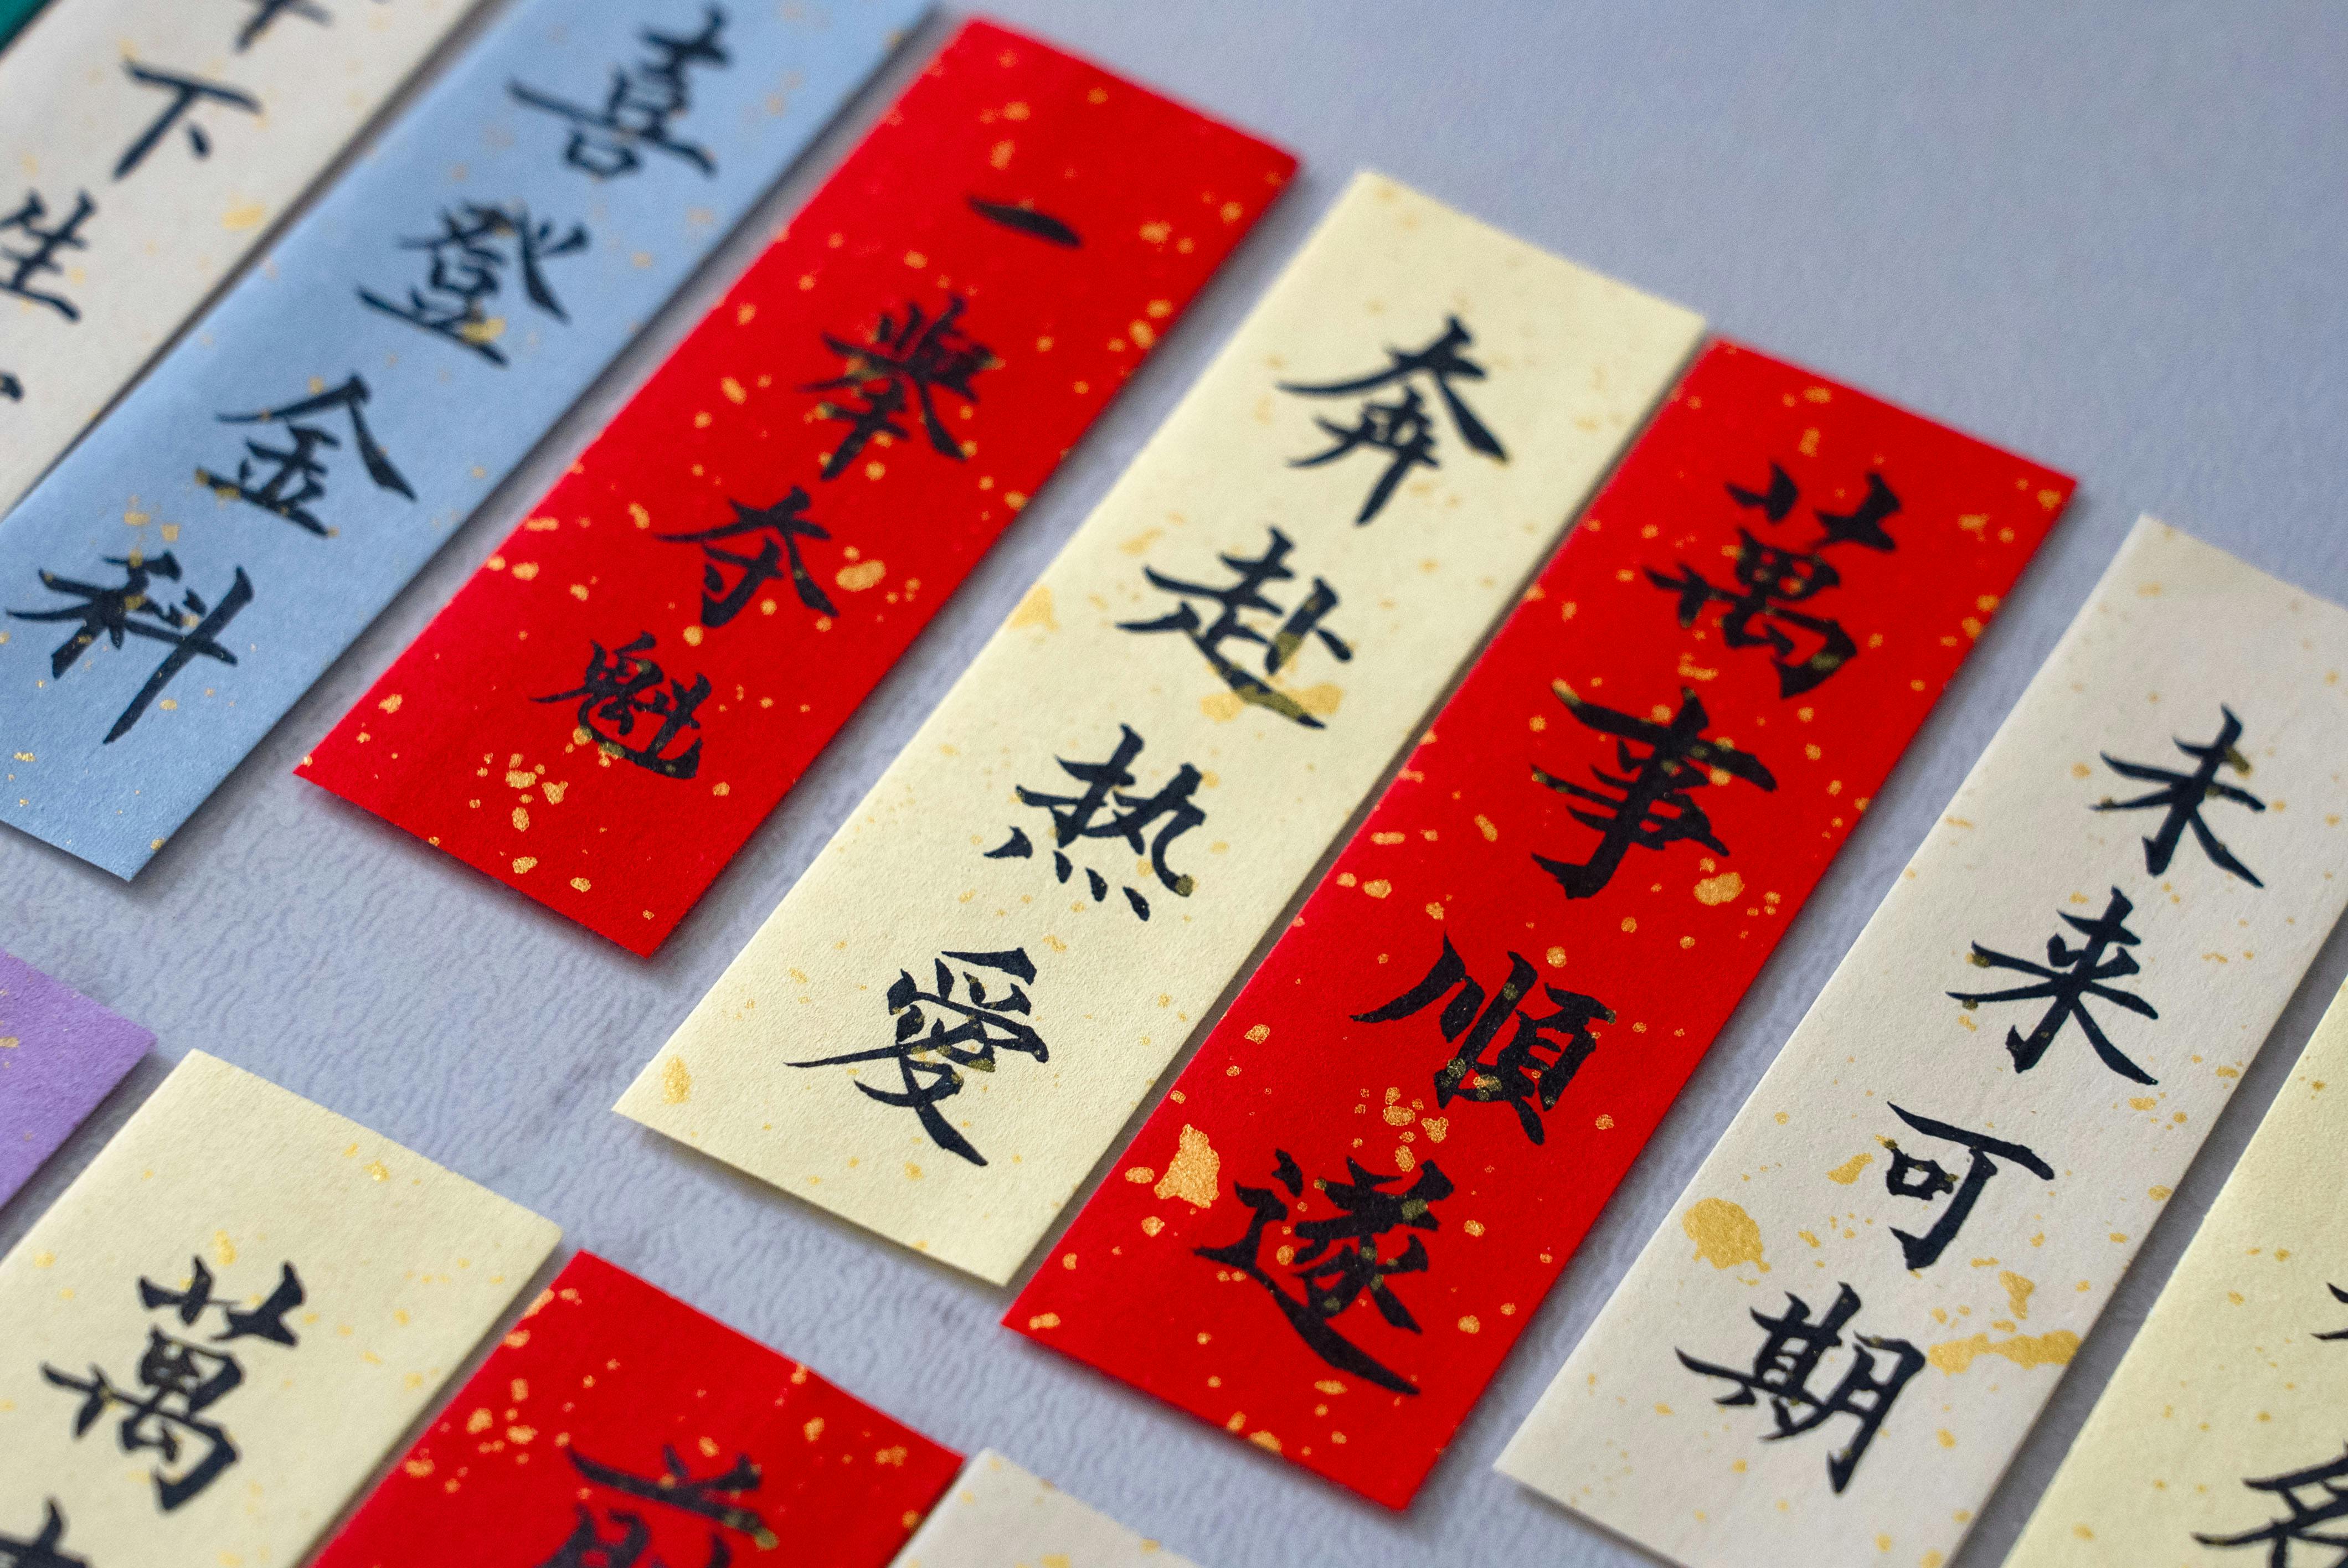 下生
喜登金科
一舉夺魁
奔赴热愛
萬事順遂
未来可期
萬
前